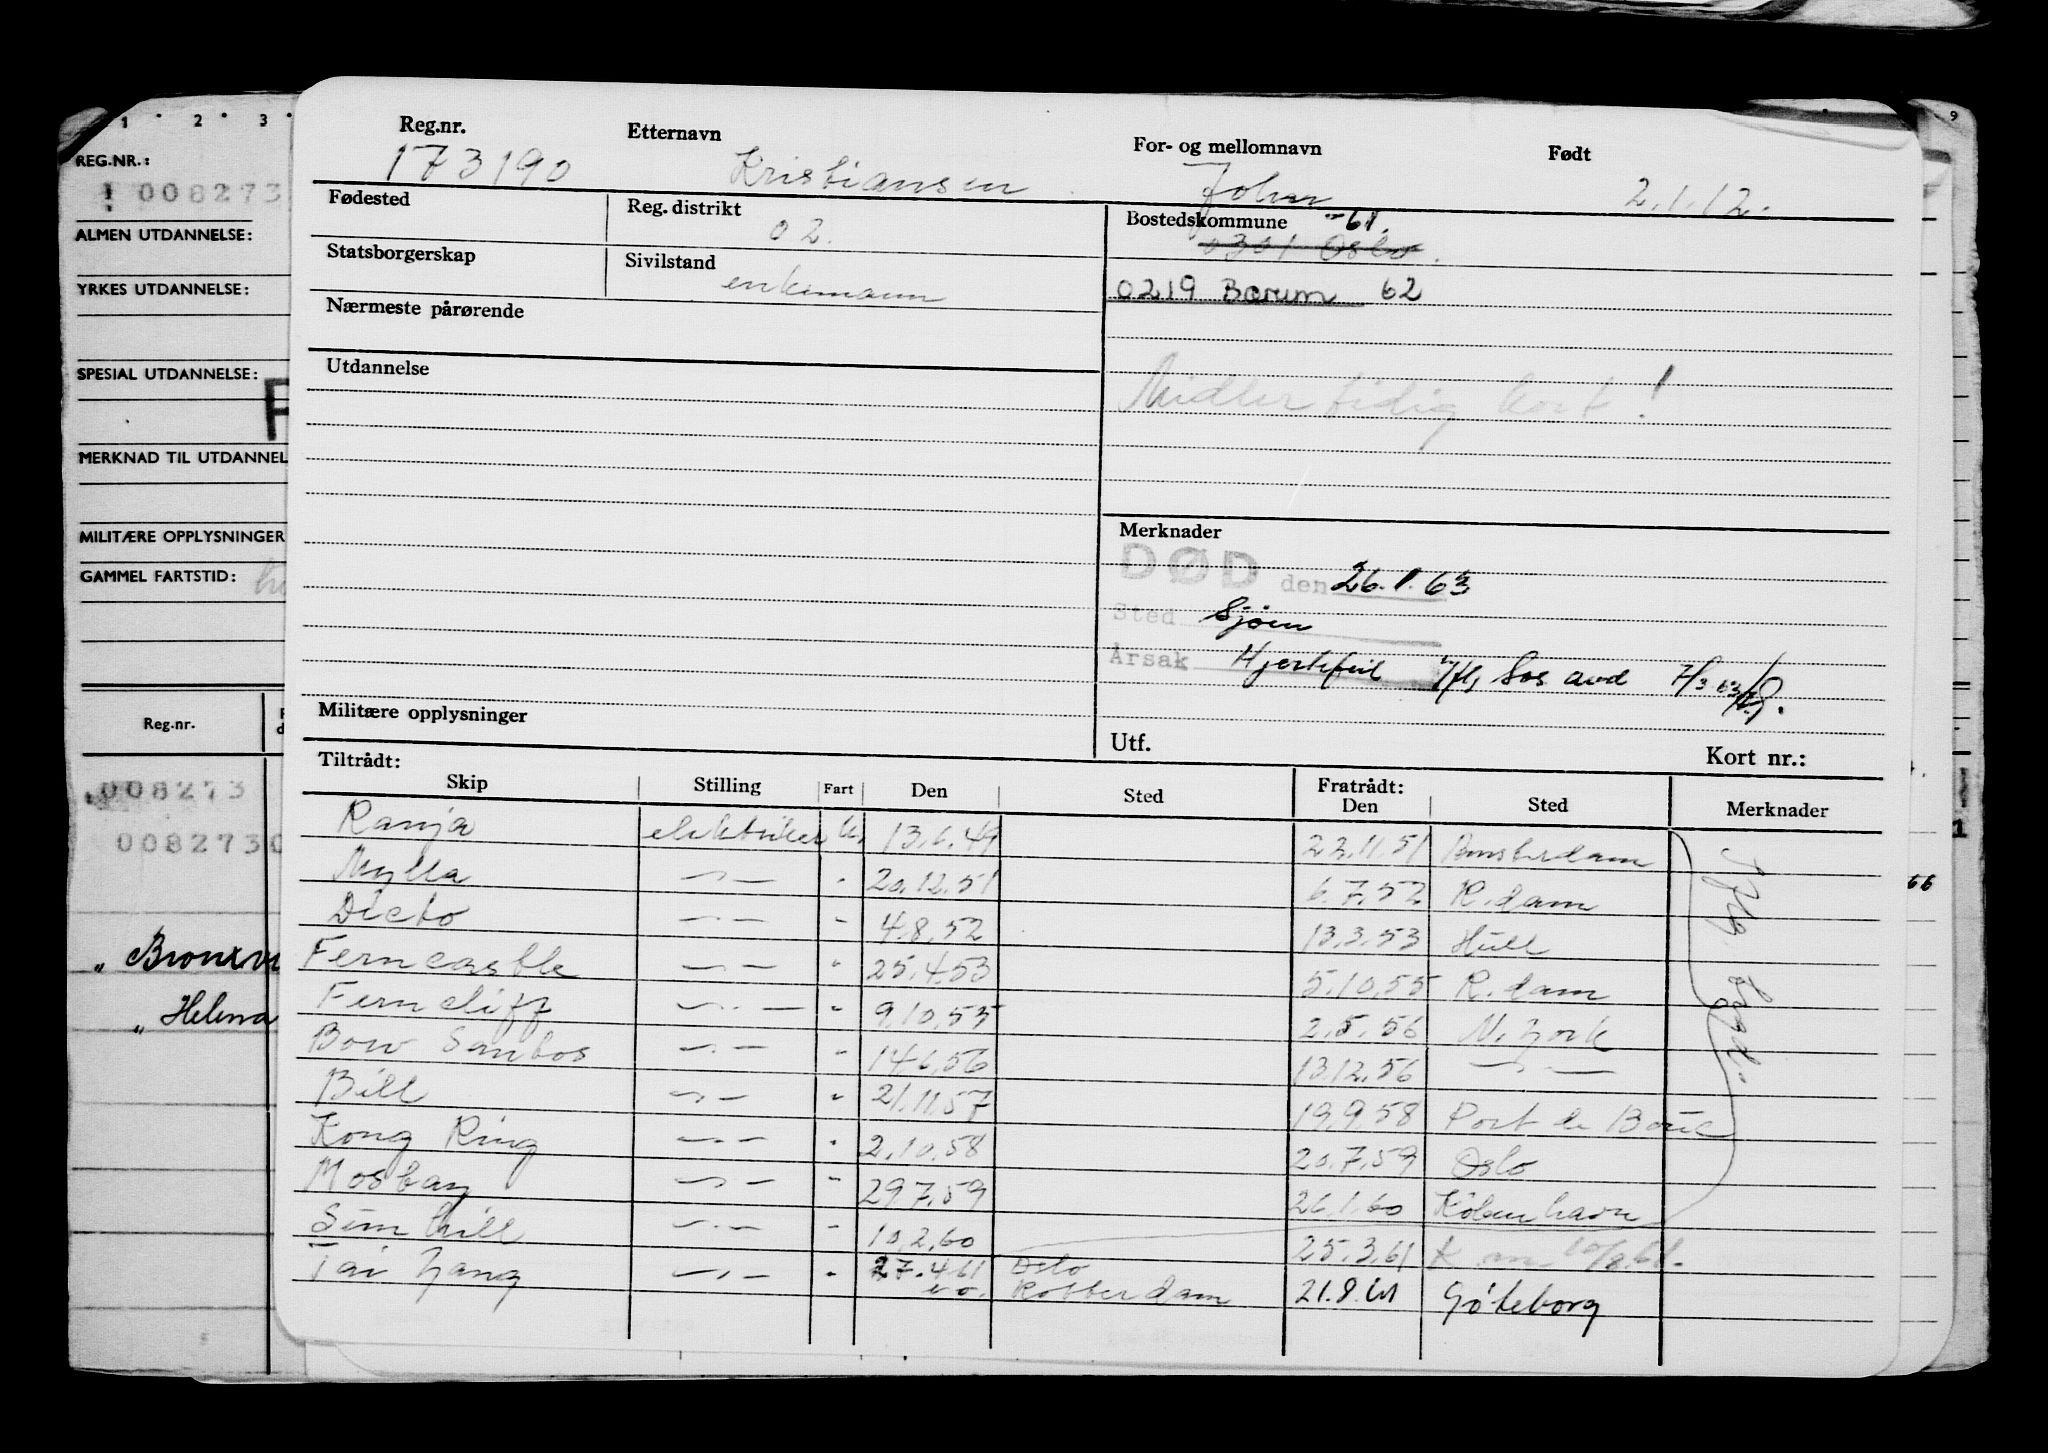 1 2 3 9
REG.NR.:
008273
ALMEN UTDANNELSE:
YRKES UTDANNELSE:
SPESIAL UTDANNELSE:
MERKNAD TIL UTDANNEL
MILITÆRE OPPLYSNINGER
GAMMEL FARTSTID:
Reg.nr.
008273
008273
„ Bronxvi
„ Helena
Reg.nr. Etternavn For- og mellomnavn Født
173190 Kristiansen Johan 2.1.12.
Fødested Reg. distrikt Bostedskommune
02. 61.
0301 Oslo.
Statsborgerskap Sivilstand
enkemann 0219 Bærum 62
Nærmeste pårørende
Utdannelse
Midlertidig kort!
Merknader
DØD den 26.1.63
Sted Sjøen
Årsak Hjertefeil Sos avd 7/3 63
Militære opplysninger
Utf. Kort nr.:
Tiltrådt: Fratrådt:
Skip Stilling Fart Den Sted Den Sted Merknader
Ranja elektriker u. 13.6.49 22.11.51 Amsterdam
Mylla —"— " 20.12.51 6.7.52 R.dam
Dicto —"— " 4.8.52 13.3.53 Hull
Ferncastle —"— " 25.4.53 5.10.55 R.dam
Ferncliff —"— " 9.10.55 2.5.56 N.York
Bow Santos —"— " 14.6.56 13.12.56 —"—
Bill —"— " 21.11.57 19.9.58 Port de Bouc
Kong Ring —"— " 2.10.58 20.7.59 Oslo
Mosbay —"— " 29.7.59 26.1.60 København
Sunhill —"— " 10.2.60 25.3.61
Tai Yang —"— " 27.4.61 Oslo
Rotterdam 21.8.61 Göteborg